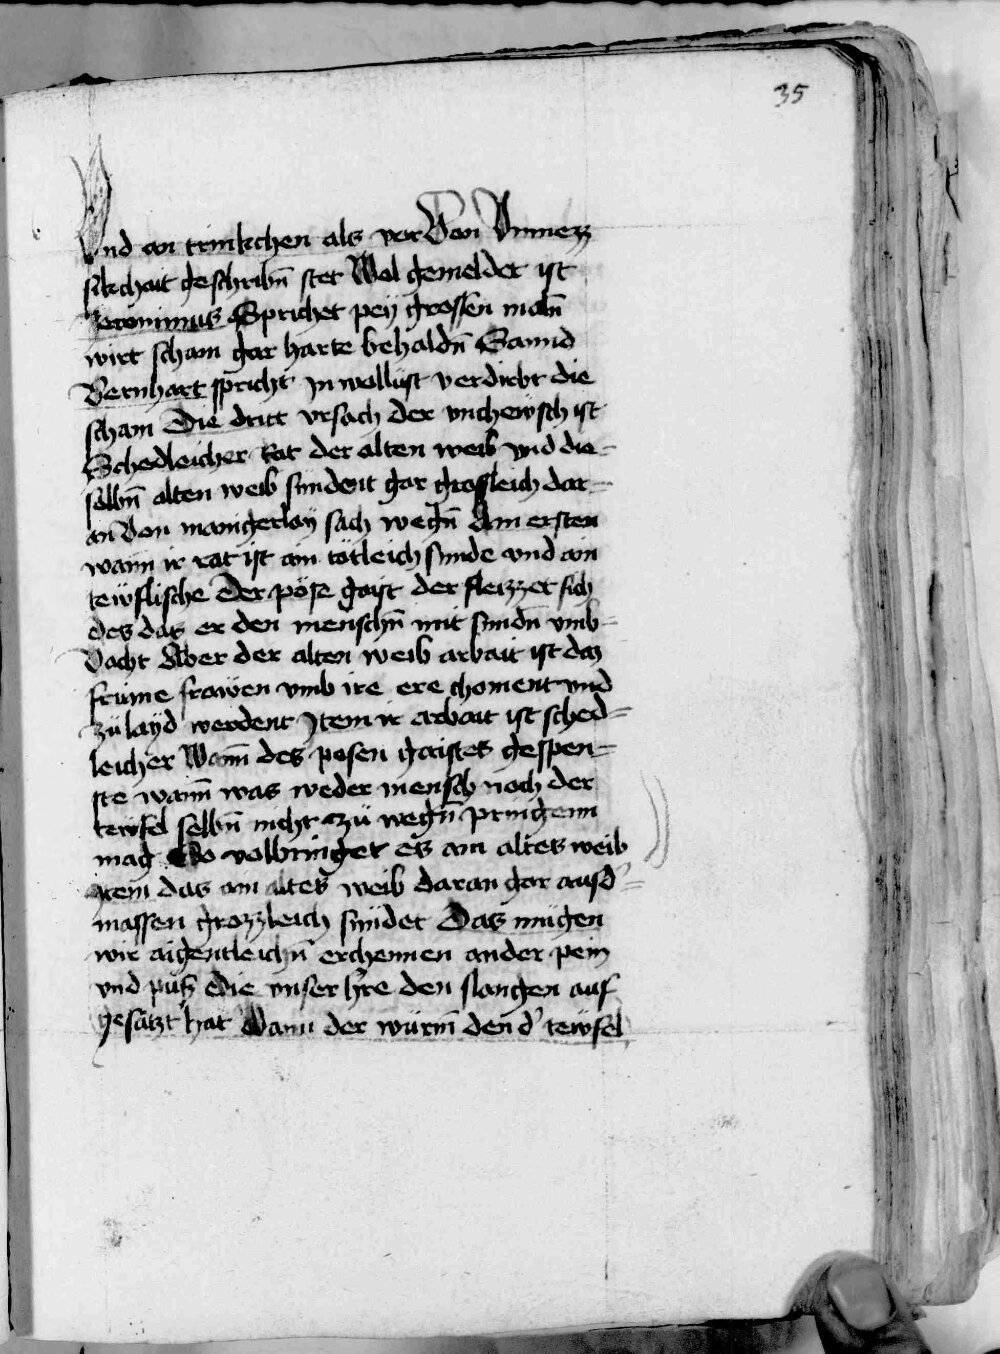 35
Vnd an trinkchen als vor Von Vnmezz
sikchait geschribn̄ stet Wol gemeldet ist
Jeronimus Sprichet pey grossen maln̄
wirt scham gar harte behaldn̄ Sannd
Bernhart spricht Jn wollust verdirbt die
scham Die dritt vrsach der vnchewsch ist
Schedleicher Rat der alten weib vnd die=
selbn̄ alten weib sundent gar grossleich dar=
an Von manigerlay sach wegn̄ Am ersten
wann ir rat ist ain tötleich sunde vnd ain
tewflische Der pöse gaist der fleizzet sich
des das er den menschn̄ mit sundn̄ vmb=
Vacht Aber der alten weib arbait ist daz
frume frawen vmb ire ere choment vnd
zü layd werdent Jtem ir arbait ist sched=
leicher Wann des posen gaistes gespen=
ste wann was weder mensch noch der
tewfel selbn̄ nicht zü wegn̄ pringenn
mag So volbringet es ain altes weib
Jtem das ain altes weib daran gar ausd'=
massen grozzleich sündet Das mügen
wir aigentleichn̄ erchennen an der pein
vnd püs die vnser h're den slangen auf
gesatzt hat Wann der würm̄ den d' tewfel